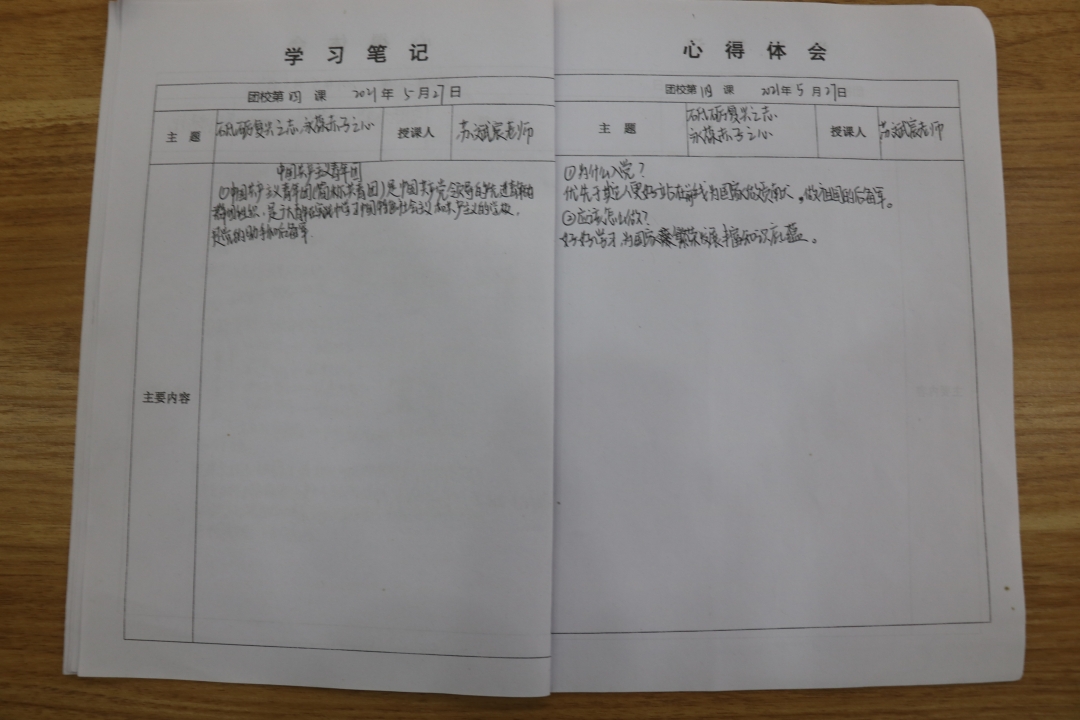 学习笔记
团校第四课 2021年5月27日
主题 砥砺复兴之志,永葆赤子之心 授课人 苏斌宸老师
主要内容
中国共产主义青年团
①中国共产主义青年团(简称共青团)是中国共产党领导的先进青年的
群团组织,是广大青年在实践中学习中国特色社会主义和共产主义的学校,
是党的助手和后备军.
心得体会
团校第四课 2021年5月27日
主题 砥砺复兴之志 永葆赤子之心 授课人 苏斌宸老师
①为什么入党?
优先于他人更好站在前线为国家做贡献,做祖国的后备军。
②应该怎么做?
好好学习,为国家繁荣发展